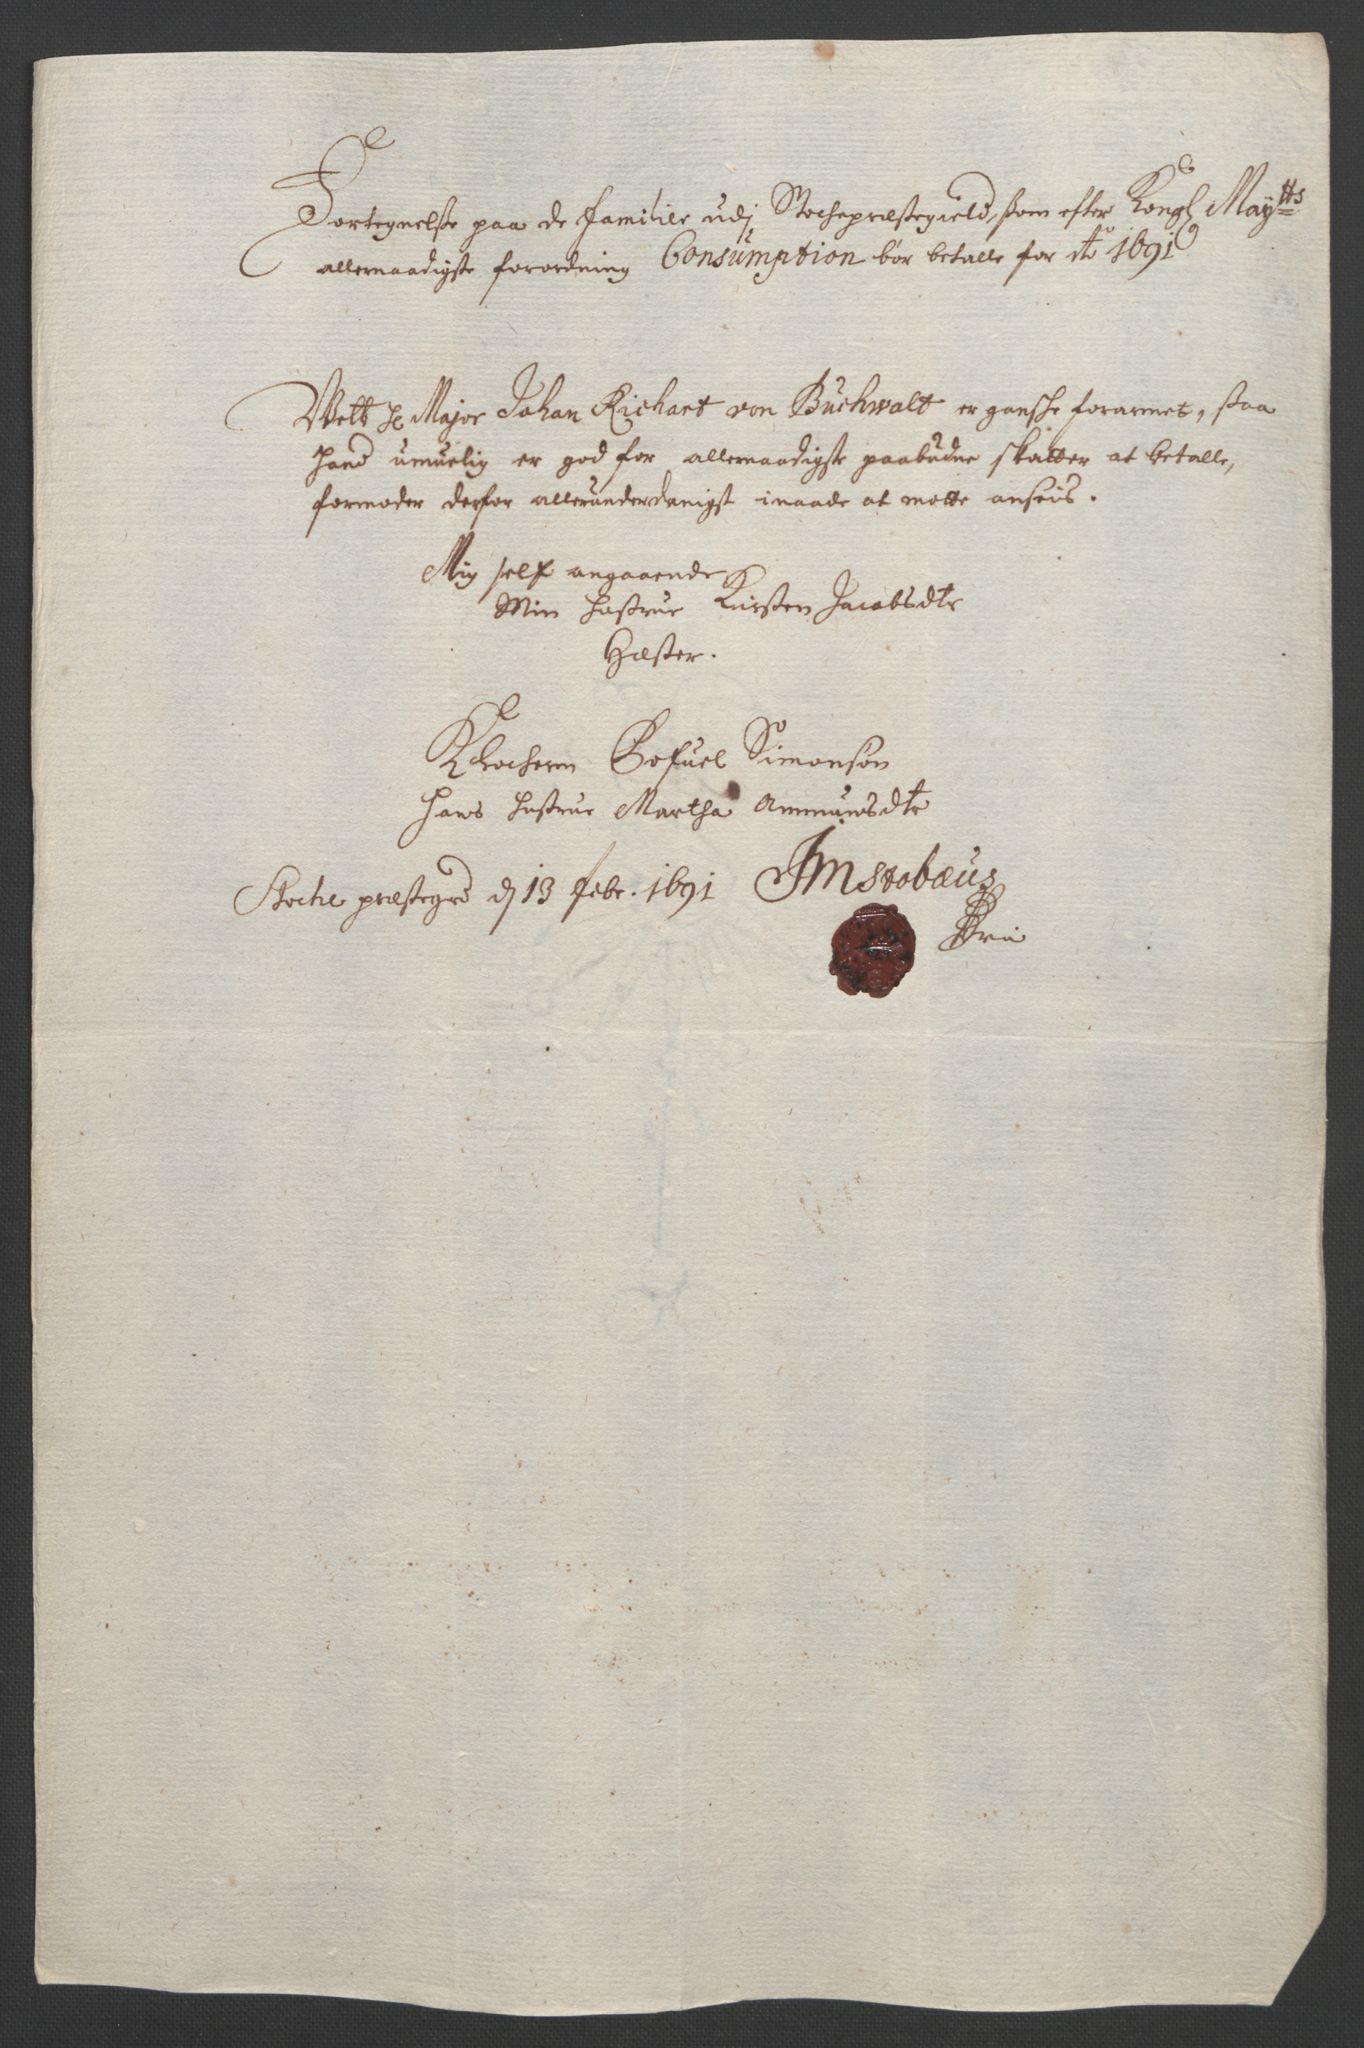 Fortegnelse paa de familier udj Stochepræstegield, som efter Kongl Maytts
allernaadigste forordning Consumption bør betalle for ao 1691
Welb hr Major Johan Richart von Buchwalt er gansche forarmet, saa
hand umuelig er god for allernaadigste paabudne skatter at betalle,
formoder derfor allerunderdanigst i naade at motte ansees.
Mig self angaaende
Min hustrue Kirsten Jacobsdtr
Hæster.
Klocheren Simonsøn
hans hustrue Martha Ammunsdtr
Stoche præstegrd d 13 febr. 1691 JMStobæus